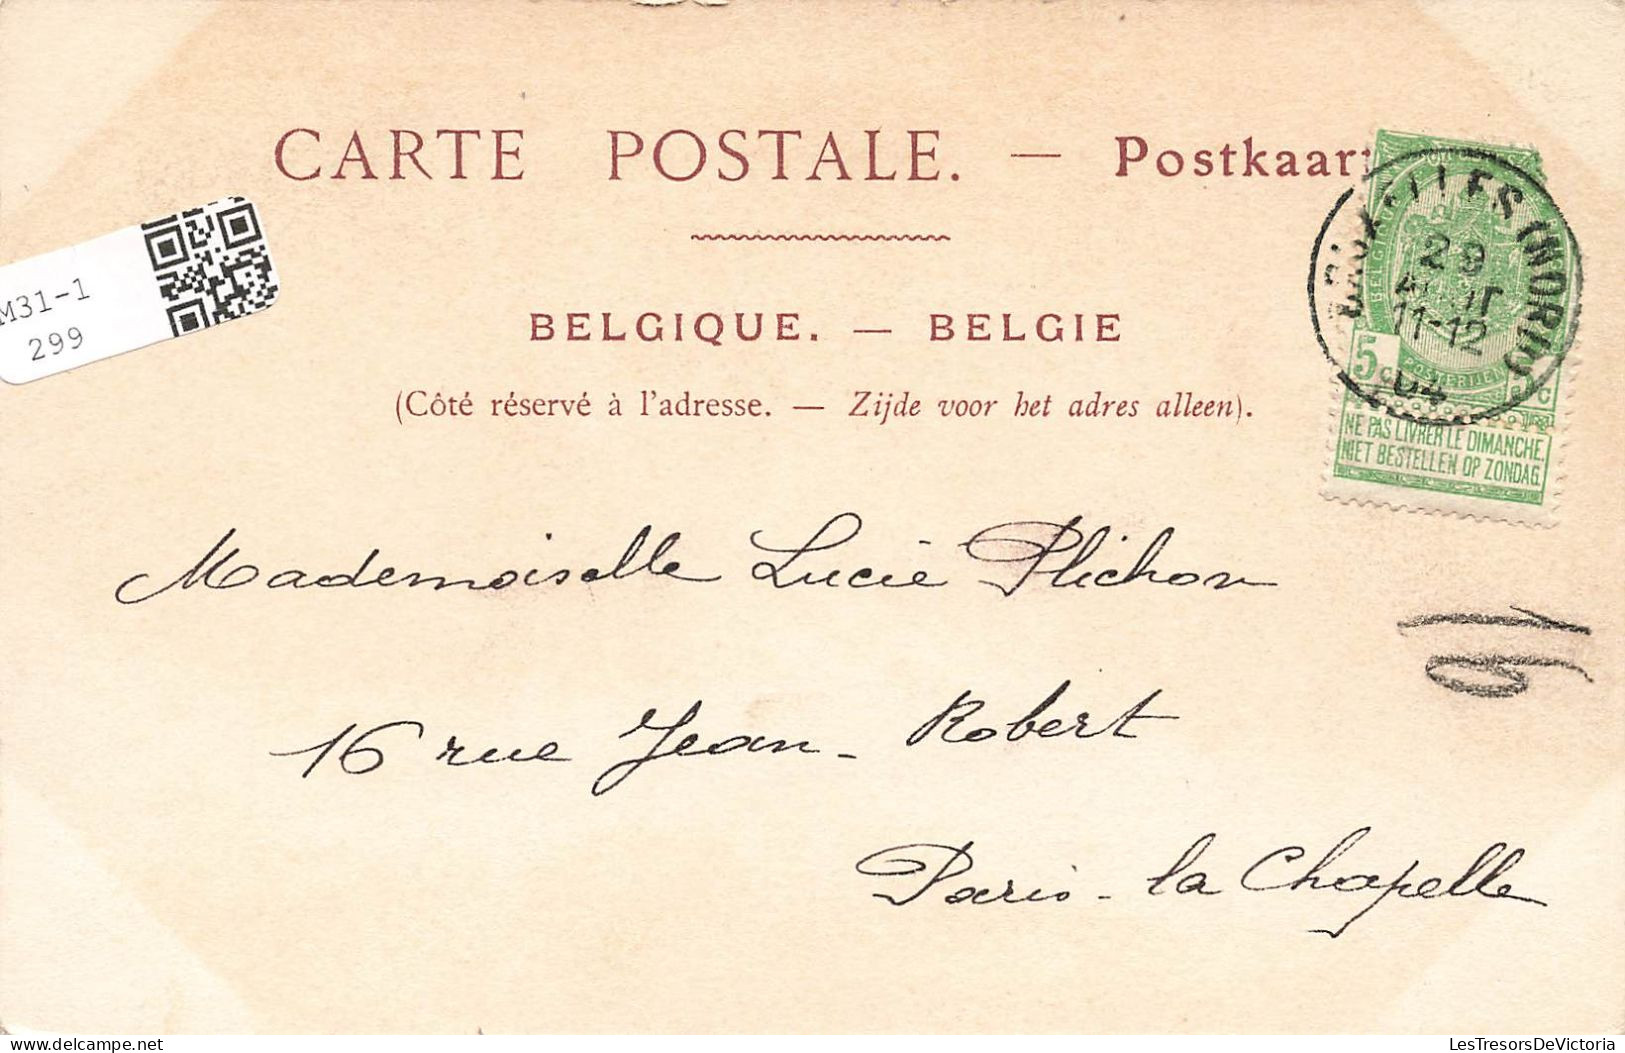 CARTE POSTALE. — Postkaart
BELGIQUE. — BELGIE
(Côté réservé à l'adresse. — Zijde voor het adres alleen).
M31-1
299
BRUXELLES (NORD)
29
AOUT
11-12
04
BELGIQUE
POSTERIJEN
5 c 5 c
NE PAS LIVRER LE DIMANCHE.
NIET BESTELLEN OP ZONDAG.
Mademoiselle Lucie Plichon
16 rue Jean-Robert
Paris-la Chapelle
delcampe.net
LesTresorsDeVictoria